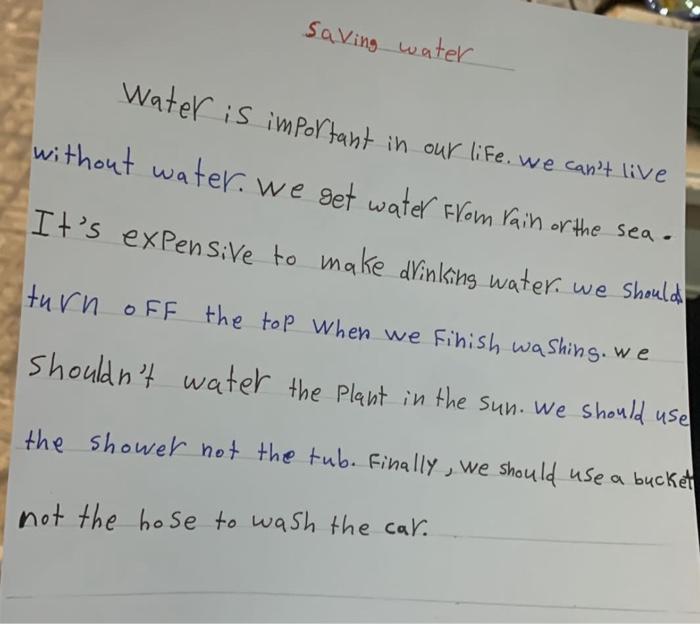 Saving water
Water is important in our life. we can't live
without water. we get water From rain or the sea.
It's expensive to make drinking water. we should
turn oFF the top when we Finish washing. we
shouldn't water the Plant in the sun. we should use
the shower not the tub. Finally, we should use a bucket
not the hose to wash the car.